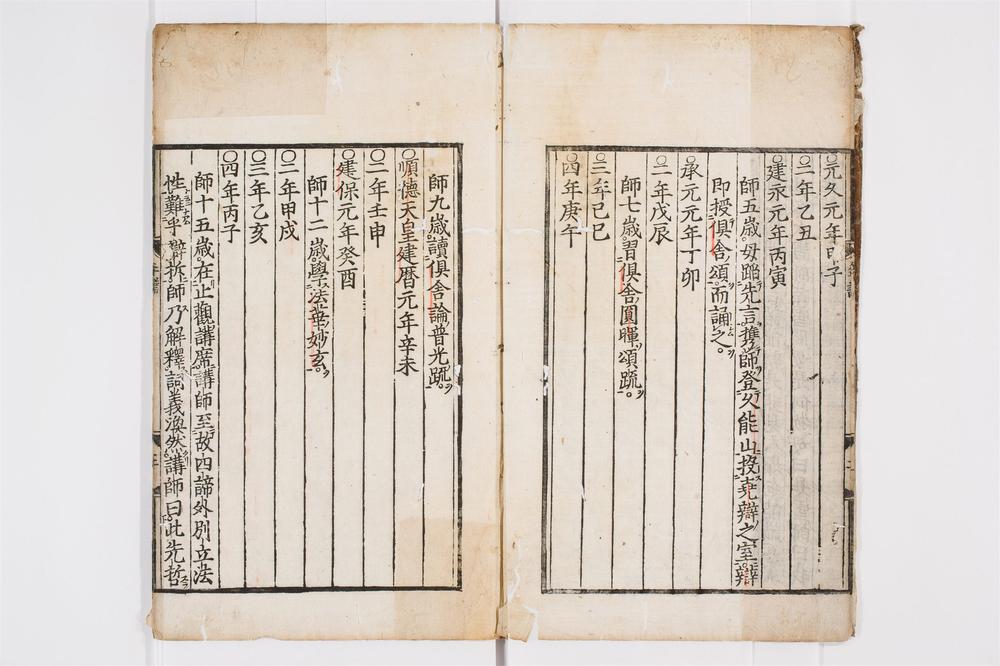 〇元久元年甲子
〇二年乙丑
〇建永元年丙寅
師五歲。母踏先言携師登久能山投堯辯之室。辯
即授俱舍頌。而誦之。
〇承元元年丁卯
〇二年戊辰
師七歲。習俱舍圓暉頌疏。
〇三年己巳
〇四年庚午
師九歲。讀俱舍論普光疏。
〇順德天皇建曆元年辛未
〇二年壬申
〇建保元年癸酉
師十二歲。學法華妙玄。
〇二年甲戌
〇三年乙亥
〇四年丙子
師十五歲。在止觀講席。講師至故四諦外別立法
性難乎辯拆。師乃解釋。詞義渙然。講師曰。此先哲